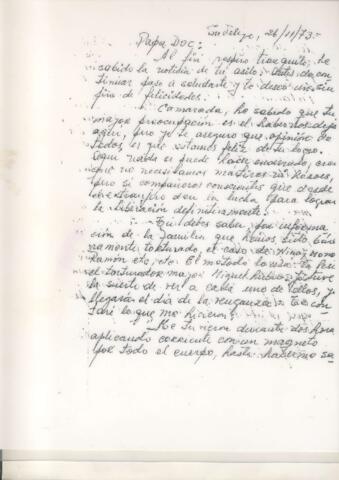 26/11/73.-
Papa Doc:
Al fin respiro tranquilo, he
sabido la noticia de tu asilo, antes de con-
tinuar paso a saludarte y te deseo una sin
fin de felicidades.
Camarada, he sabido que tu
mayor preocupación es el habernos deja
pero yo te aseguro que opinión de
todos es que estamos feliz de tu
Aquí nada se puede hacer encerrado, creo
que no necesitamos mártires ni héroes,
pero si compañeros conscientes que desde
el extranjero den la lucha para lograr
la liberación definitivamente.
Tú debes saber por informa
ción de la familia que hemos sido
mente torturado, el caso de Nino, Nono
Ramón etc, etc. El método
el torturador mayor Miguel tuve
la suerte de ver a cada uno de ellos, y
llegará el día de la venganza. Te con-
taré lo que me hicieron
Me tuvieron durante dos hora
aplicando corriente con un magneto
por todo el cuerpo, hasta haberme sa-